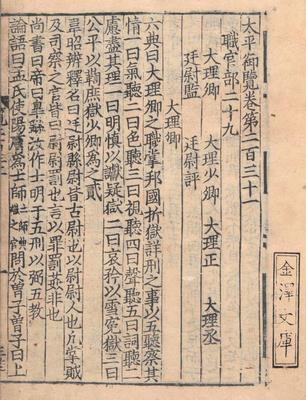 太平御覽卷第二百三十一
職官部二十九
大理卿　大理少卿　大理正　大理丞
廷尉監　廷尉評
大理卿
六典曰大理卿之職掌邦國折獄詳刑之事以五聽察其
情一曰氣聽二曰色聽三曰視聽四曰聲聽五曰詞聽二
慮盡其理一曰明慎以讞疑獄二曰哀矜以雪冤獄三曰
公平以鞫庶獄少卿爲之貳
韋昭辨釋名曰廷尉縣尉皆古尉也以尉尉人也凡掌賊
及司察之官皆曰尉尉罰也言以罪罰姦非也
尚書曰帝曰臯繇汝作士明于五刑以弼五教
論語曰孟氏使陽膚爲士師 士師典獄之官 問於曾子曾子曰上
金澤文庫